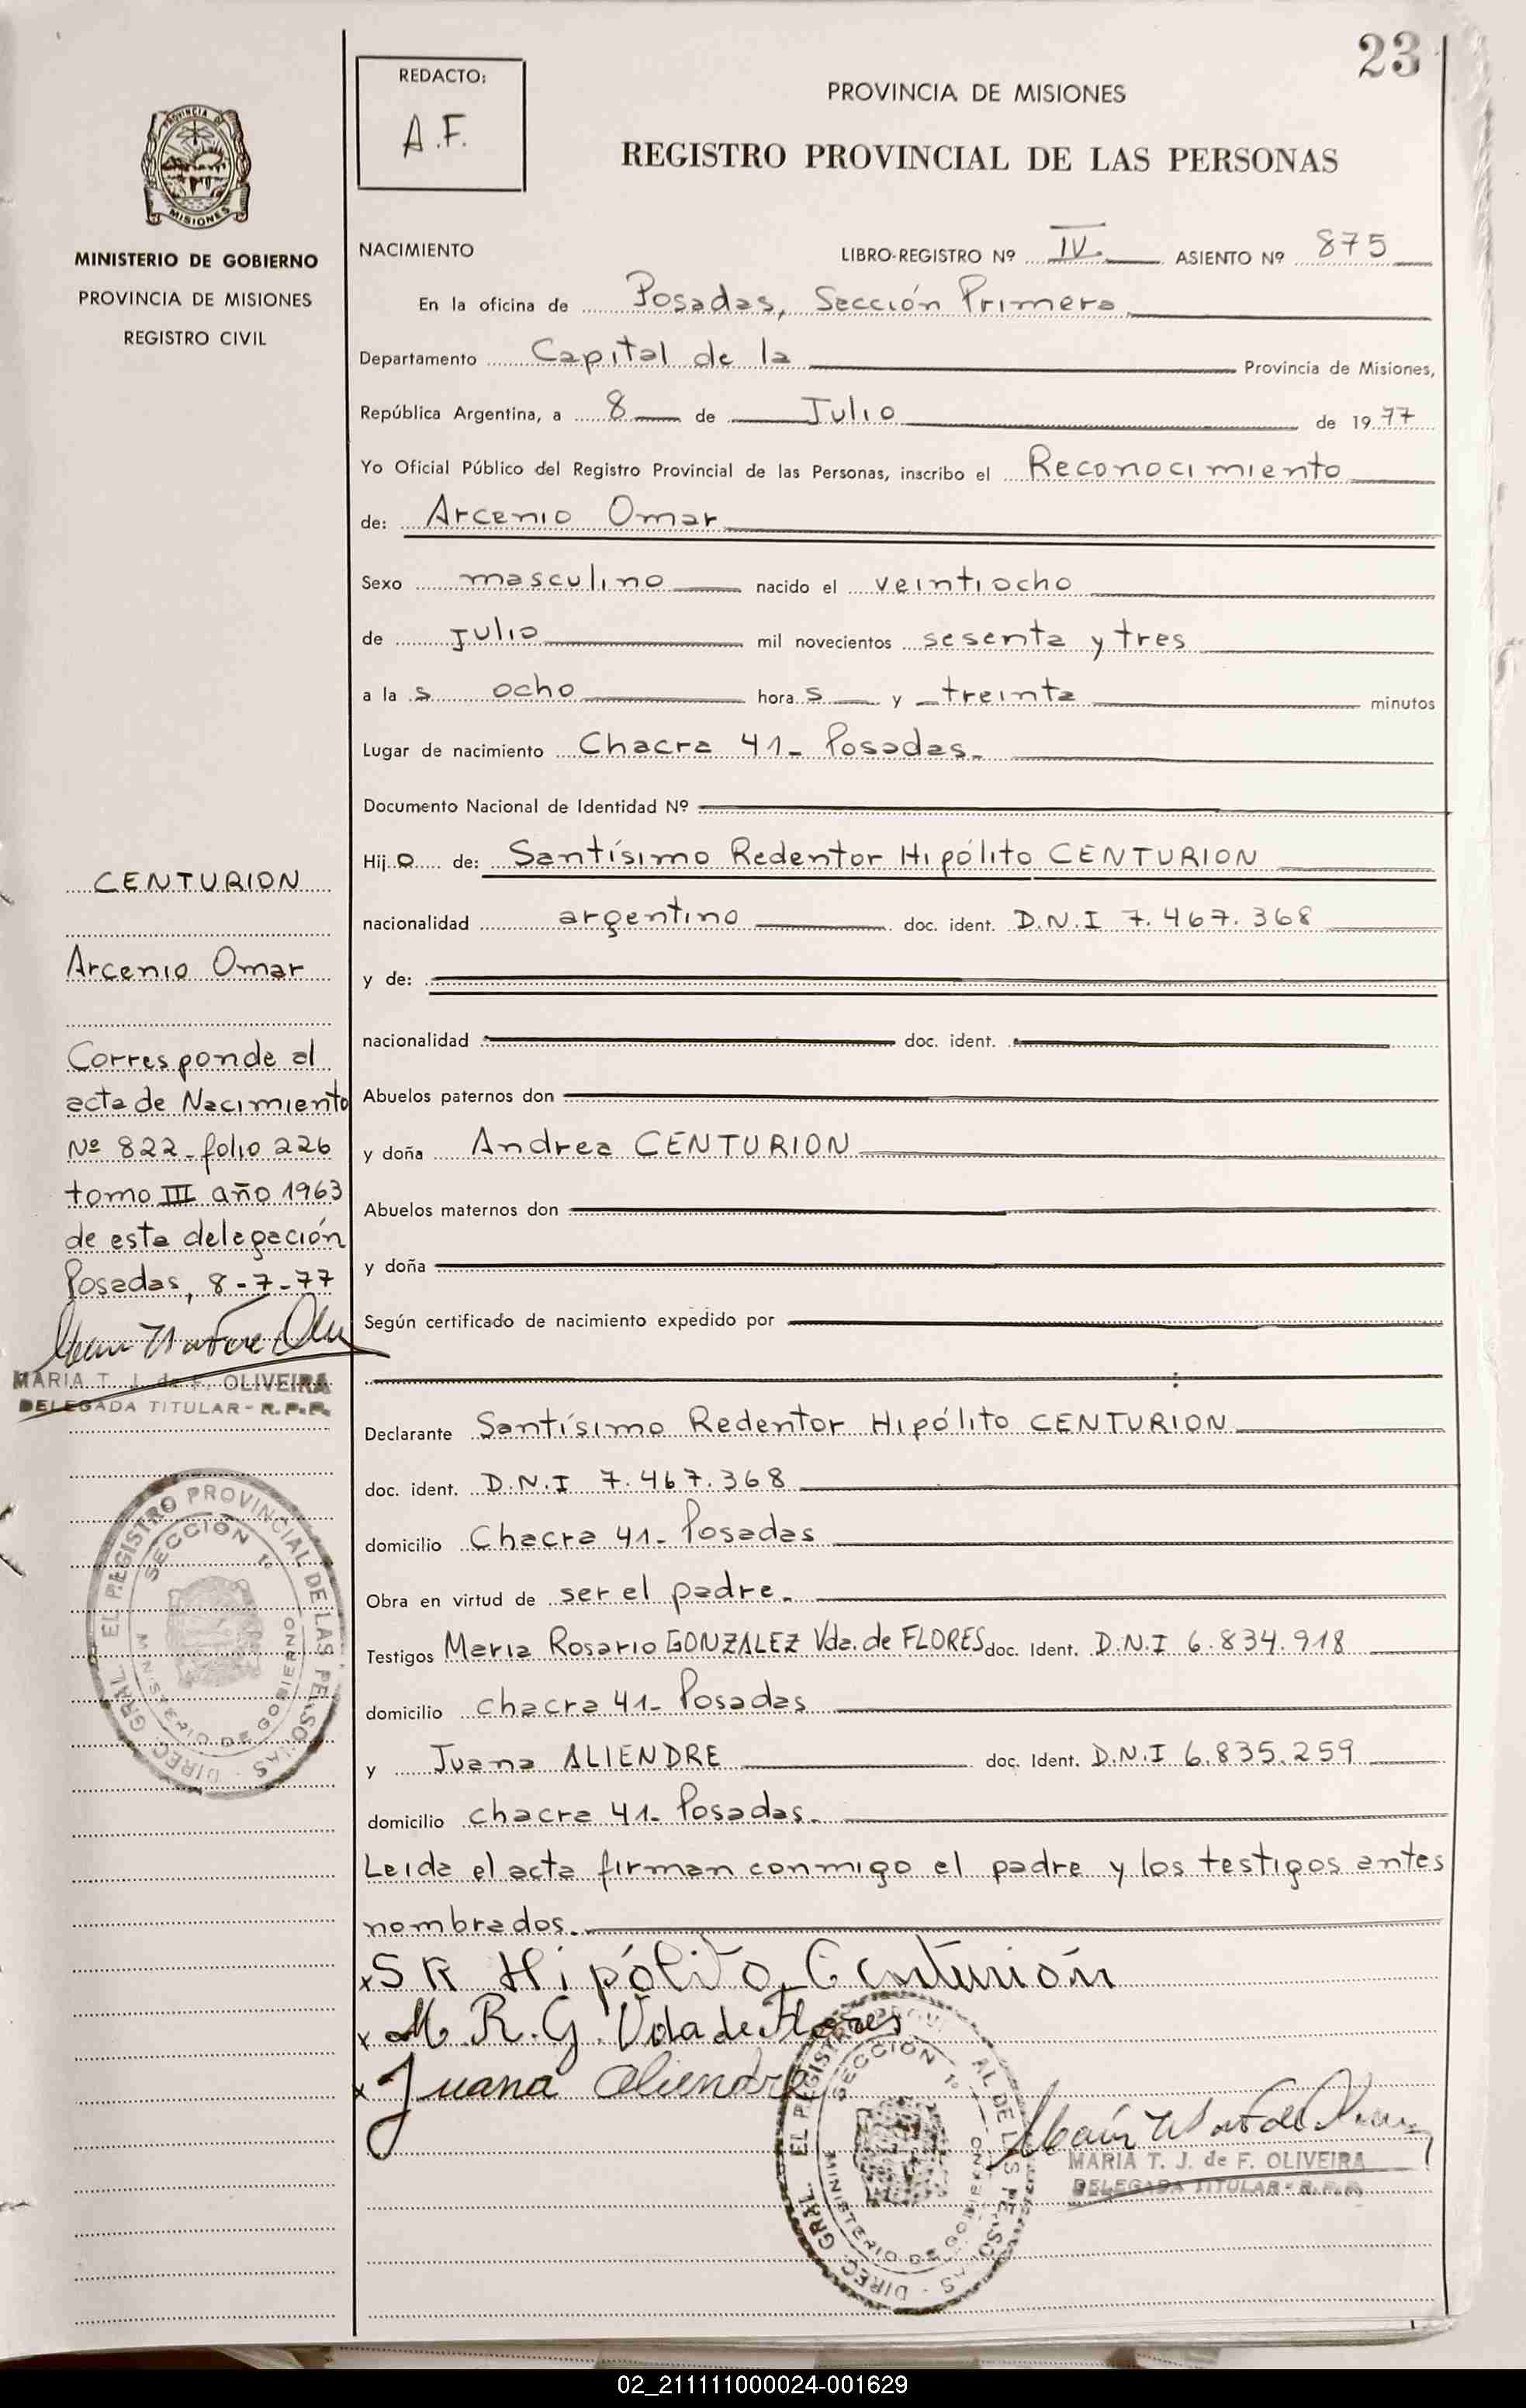 23
REDACTO:
A.F.
PROVINCIA DE MISIONES
REGISTRO PROVINCIAL DE LAS PERSONAS
PROVINCIA DE
MISIONES
MINISTERIO DE GOBIERNO
PROVINCIA DE MISIONES
REGISTRO CIVIL
NACIMIENTO LIBRO-REGISTRO Nº IV ASIENTO Nº 875
En la oficina de Posadas, Sección Primera
Departamento Capital de la Provincia de Misiones,
República Argentina, a 8 de Julio de 1977
Yo Oficial Público del Registro Provincial de las Personas, inscribo el Reconocimiento
de: Arcenio Omar
Sexo masculino nacido el veintiocho
de julio mil novecientos sesenta y tres
a las ocho horas y treinta minutos
Lugar de nacimiento Chacra 41- Posadas-
Documento Nacional de Identidad Nº
Hijo de: Santísimo Redentor Hipólito CENTURION
nacionalidad argentino doc. ident. D.N.I 7.467.368
y de:
nacionalidad doc. ident.
Abuelos paternos don
y doña Andrea CENTURION
Abuelos maternos don
y doña
Según certificado de nacimiento expedido por
Declarante Santísimo Redentor Hipólito CENTURION
doc. ident. D.N.I 7.467.368
domicilio Chacra 41- Posadas
Obra en virtud de ser el padre.
Testigos Maria Rosario GONZALEZ Vda. de FLORES doc. Ident. D.N.I 6.834.918
domicilio chacra 41- Posadas
y Juana ALIENDRE doc. Ident. D.N.I 6.835.259
domicilio chacra 41- Posadas-
Leida el acta firman conmigo el padre y los testigos antes
nombrados.
x S R Hipólito Centurión
x M. R. G. Vda de Flores
x Juana Aliendre
MARIA T. J. de F. OLIVEIRA
DELEGADA TITULAR - R.P.P.
CENTURION
Arcenio Omar
Corresponde al
acta de Nacimiento
Nº 822- folio 226
tomo III año 1963
de esta delegación
Posadas, 8-7-77
MARIA T. J. de F. OLIVEIRA
DELEGADA TITULAR - R.P.P.
DIREC. GRAL. EL REGISTRO PROVINCIAL DE LAS PERSONAS
SECCION 1º
MINISTERIO DE GOBIERNO
DIREC. GRAL. EL REGISTRO PROVINCIAL DE LAS PERSONAS
SECCION 1º
MINISTERIO DE GOBIERNO
02_211111000024-001629